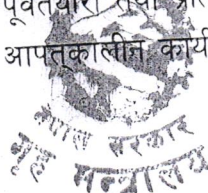 पूर्वतयारी तथा प्रति
आपत्‌कालीन कार्य
नेपाल सरकार
गृह मन्त्रालय